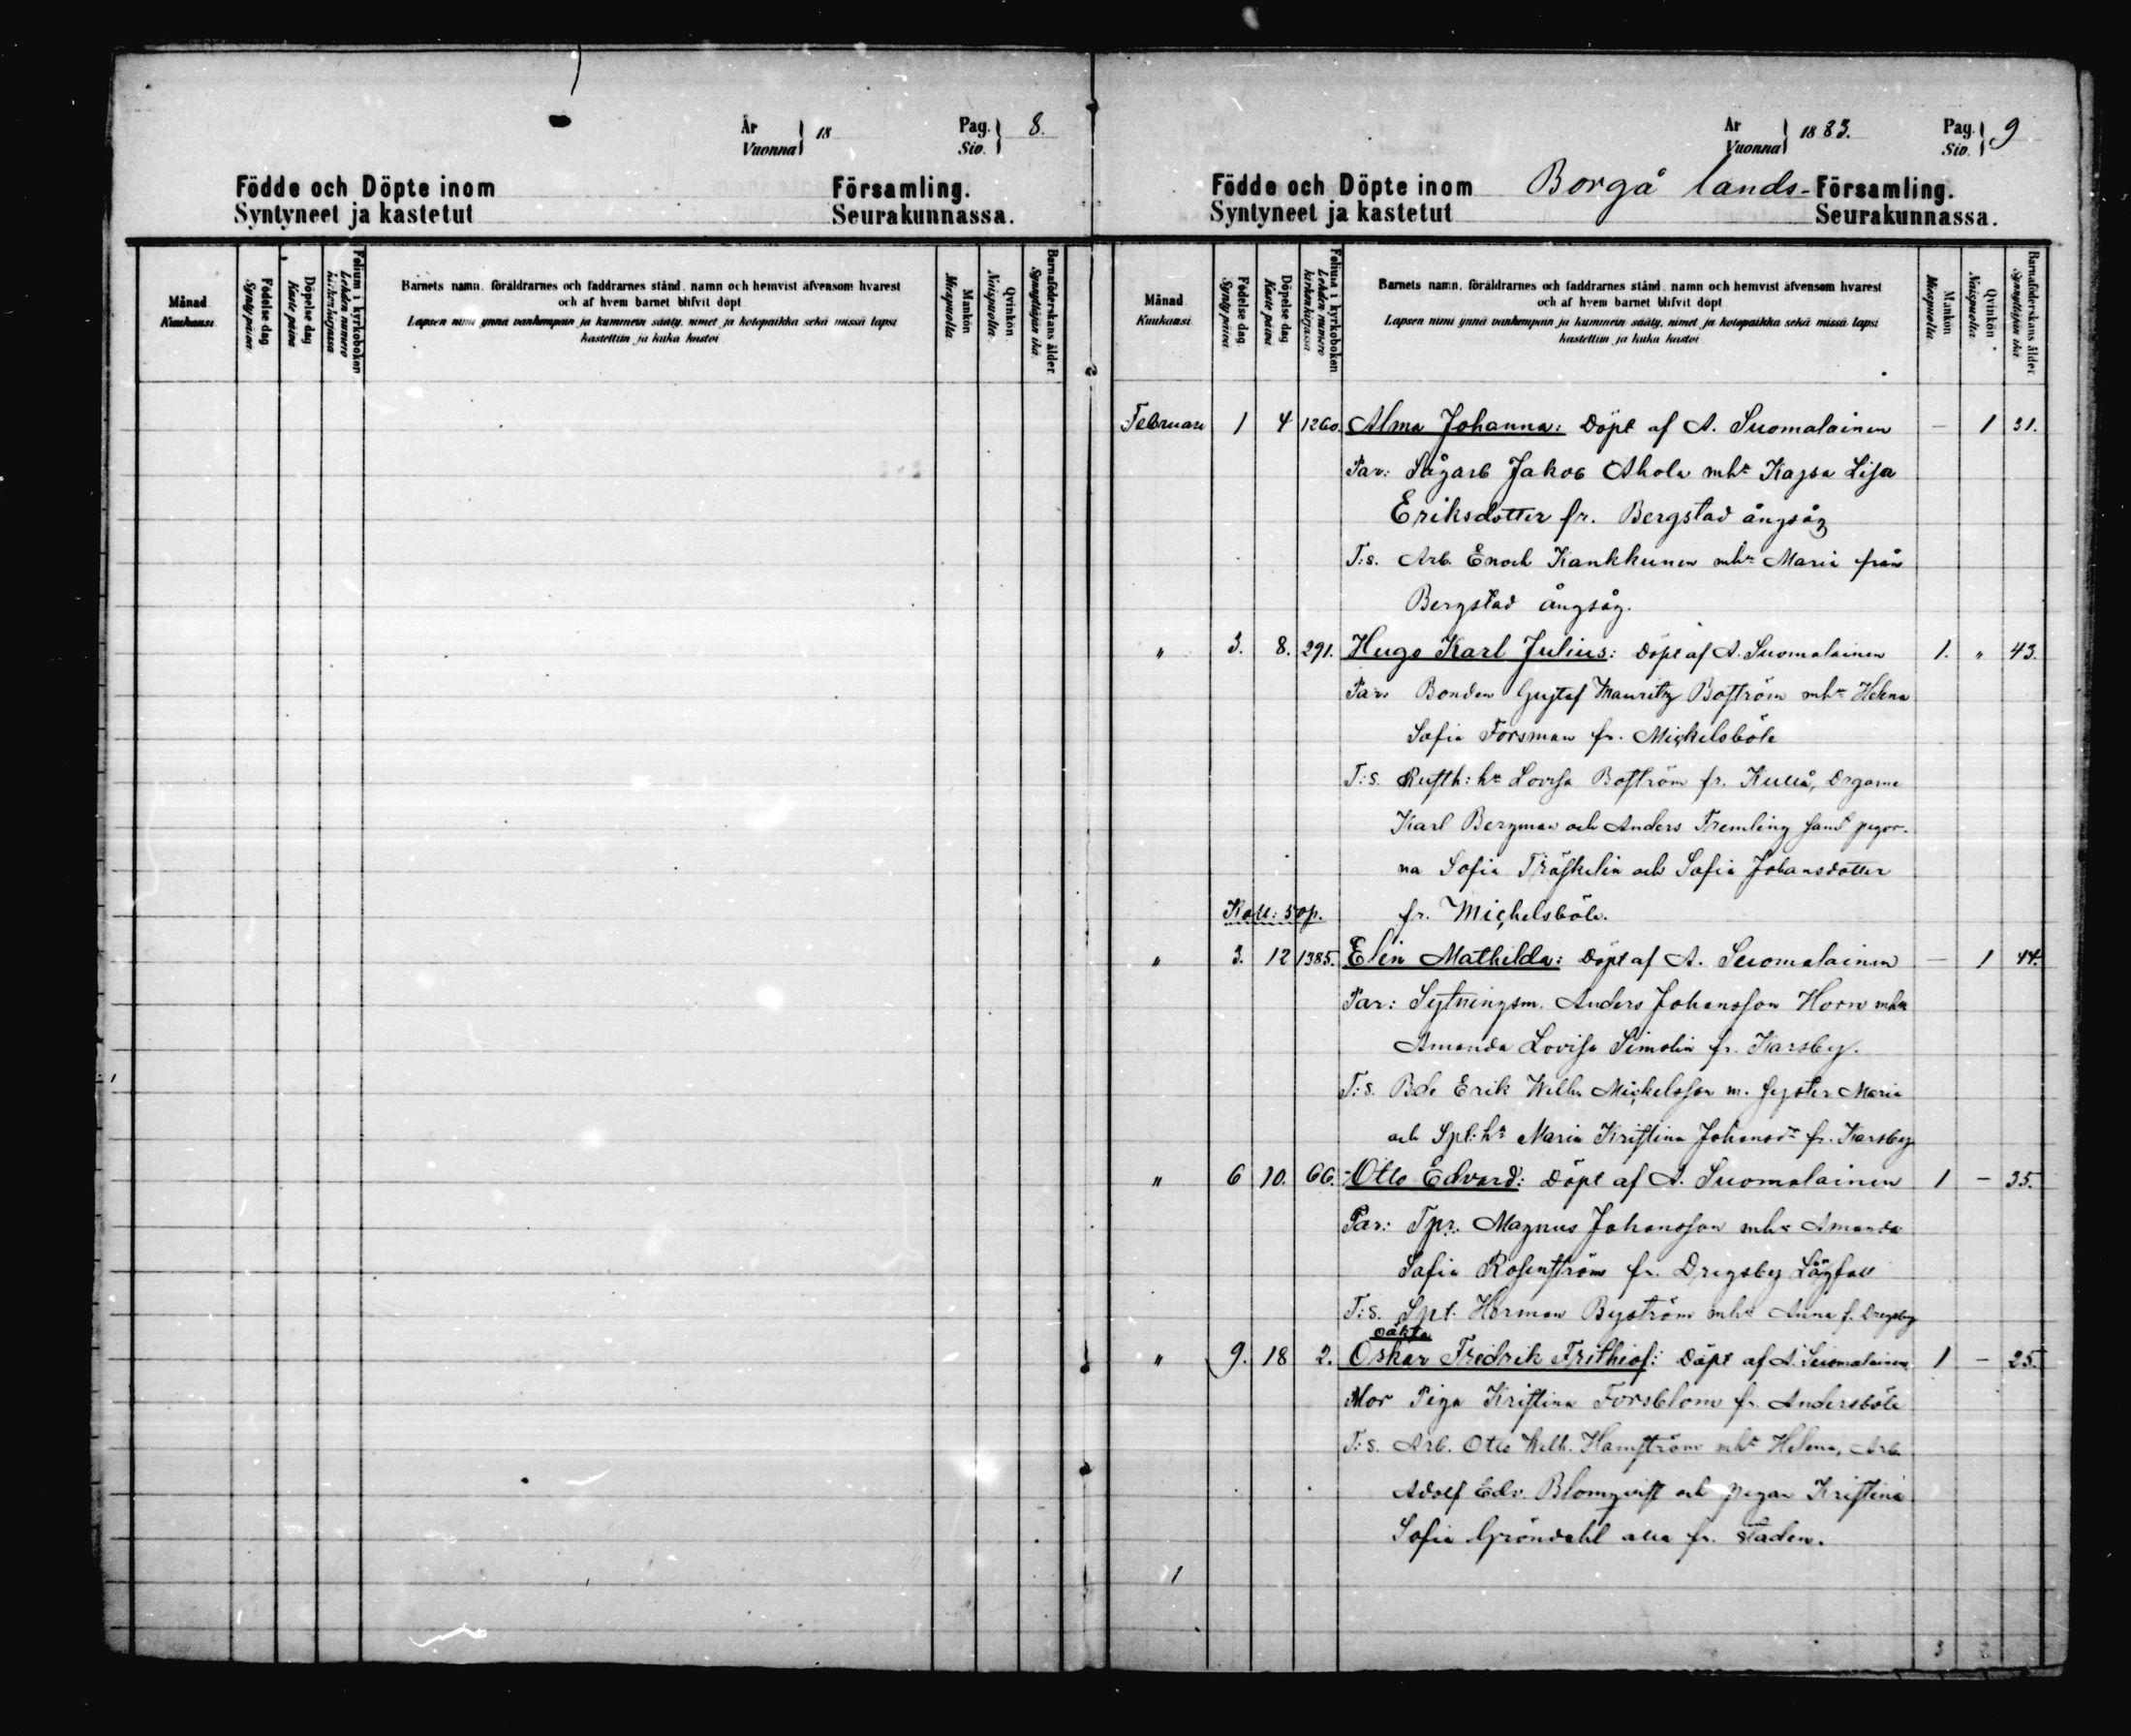 År
Vuonna
18
Pag.
Siv.
8.
Födde och Döpte inom Församling.
Syntyneet ja kastetut Seurakunnassa.
Månad
Kuukausi
Födelse dag
Synty päivä
Döpelse dag
Kaste päivä
Folium i kyrkoboken
Lehden numero
kirkonkirjassa
Barnets namn, föräldrarnes och faddrarnes stånd, namn och hemvist äfvensom hvarest
och af hvem barnet blifvit döpt
Lapsen nimi ynnä vanhempain ja kummein sääty, nimet ja kotopaikka sekä missä lapsi
kastettiin ja kuka kastoi
Mankön
Miespuolia
Qvinkön.
Naispuolia.
Barnaföderskans ålder.
Synnyttäjän ikä.
År
Vuonna
1883.
Pag.
Siv.
9
Födde och Döpte inom Borgå lands-Församling.
Syntyneet ja kastetut Seurakunnassa.
Månad
Kuukausi
Födelse dag.
Synty päivä.
Döpelse dag
Kaste päivä
Folium i kyrkoboken
Lehden numero
kirkonkirjassa
Barnets namn, föräldrarnes och faddrarnes stånd, namn och hemvist äfvensom hvarest
och af hvem barnet blifvit döpt
Lapsen nimi ynnä vanhempain ja kummein sääty, nimet ja kotopaikka sekä missä lapsi
kastettiin ja kuka kastoi
Mankön
Miespuolia.
Qvinkön
Naispuolia
Barnaföderskans ålder
Synnyttäjän ikä.
Februari 1 4 1260. Alma Johanna: Döpt af A. Suomalainen — 1 31.
Par: Sågarb Jakob Ahola mhu Kajsa Lisa
Eriksdotter fr. Bergstad ångsåg
T:s. Arb. Enoch Kankkunen mhu Maria från
Bergstad ångsåg.
" 3. 8. 291. Hugo Karl Julius: Döpt af A. Suomalainen 1. " 43.
Par: Bonden Gustaf Mauritz Boström mhu Helena
Sofia Forsman fr. Mickelsböle
T:s. Rusth: hu Lovisa Boström fr. Kullå, Drgarne
Karl Bergman och Anders Tremling samt pigor-
na Sofia Träskelin och Sofia Johansdotter
Koll: 50p. fr. Mickelsböle.
" 3. 12 1385. Elin Mathilda: Döpt af A. Suomalainen — 1 44.
Par: Sytningsm. Anders Johansson Horn mhu
Amanda Lovisa Simolin fr. Karsby.
T:s. Bde Erik Wilh. Mickelsson m. syster Maria
och Spl:hu Maria Kristina Johansdr fr. Karsby
" 6 10. 66. Otto Edvard: Döpt af A. Suomalainen 1 — 35.
Par: Tpr. Magnus Johansson mhu Amanda
Sofia Rosenström fr. Drägsby Lågfall
T:s. Spl. Herman Byström mhu Anna f. Drägsby
oäkta
" 9. 18 2. Oskar Fredrik Frithiof: Döpt af A. Suomalainen 1 — 25.
Mor Piga Kristina Forsblom fr. Andersböle
T:s. Arb. Otto Wilh. Hamström mhu Helena, Arb.
Adolf Edv. Blomqvist och pigan Kristina
Sofia Gröndahl alla fr. staden.
1
3